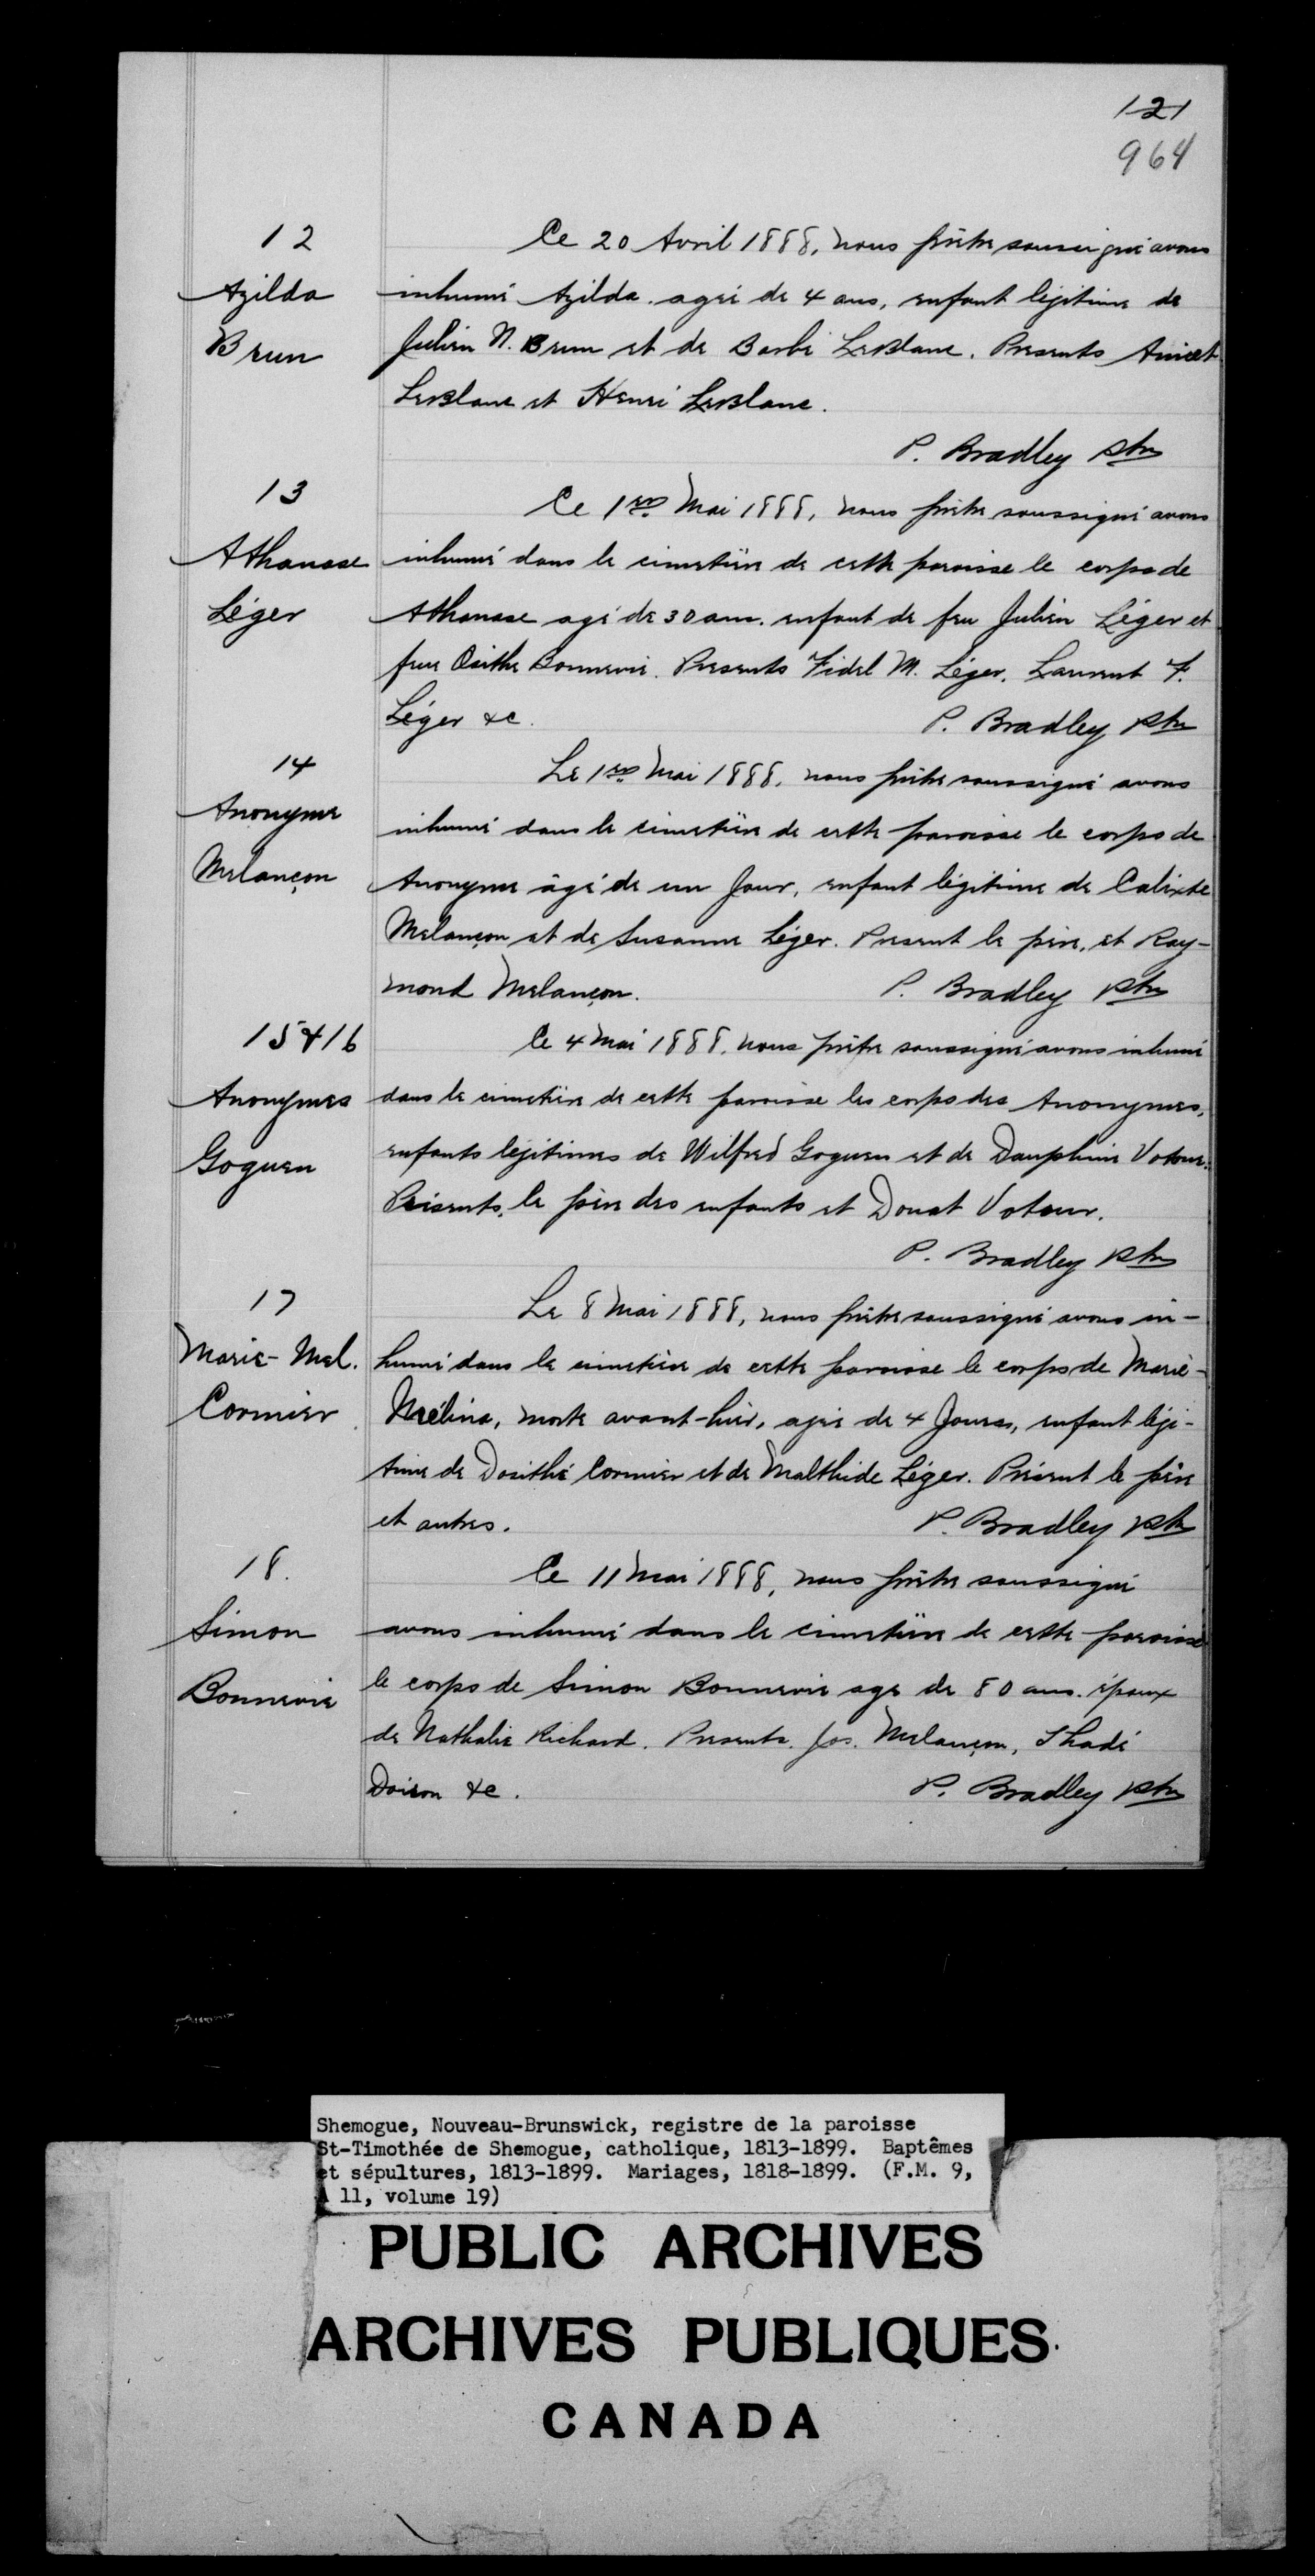 121
964
12
Azilda
Brun
Ce 20 Avril 1888, nous prêtre soussigné avons
inhumé Azilda agée de 4 ans, enfant légitime de
Julien N. Brun et de Barbe LeBlanc. Presents Anicet
LeBlanc et Henri LeBlanc.
P. Bradley Ptre
13
Athanase
Léger
Ce 1er Mai 1888, nous prêtre soussigné avons
inhumé dans le cimetière de cette paroisse le corps de
Athanase agé de 30 ans. enfant de feu Julien Léger et
feue Osithe Bonnevie. Presents Fidel M. Léger, Laurent F.
Léger &c.
P. Bradley Ptre
14
Anonyme
Melançon
Le 1er Mai 1888, nous prêtre soussigné avons
inhumé dans le cimetière de cette paroisse le corps de
Anonyme âgé de un Jour, enfant légitime de Calixte
Melançon et de Susanne Léger. Present le père, et Ray-
mond Melançon.
P. Bradley Ptre
15 & 16
Anonymes
Goguen
Ce 4 Mai 1888, nous prêtre soussigné avons inhumé
dans le cimetière de cette paroisse les corps des Anonymes,
enfants légitimes de Wilfred Goguen et de Dauphine Votour.
Présents, le père des enfants et Donat Votour.
P. Bradley Ptre
17
Marie-Mel.
Cormier
Le 8 Mai 1888, nous prêtre soussigné avons in-
humé dans le cimetière de cette paroisse le corps de Marie-
Mélina, morte avant-hier, agée de 4 Jours, enfant légi-
time de Dosithé Cormier et de Malthide Léger. Présent le père
et autres.
P. Bradley Ptre
18.
Simon
Bonnevie
Ce 11 Mai 1888, nous prêtre soussigné
avons inhumé dans le cimetière de cette paroisse
le corps de Simon Bonnevie age de 80 ans. époux
de Nathalie Richard. Presents. Jos. Melançon, Thadé
Doiron &c.
P. Bradley Ptre
Shemogue, Nouveau-Brunswick, registre de la paroisse
St-Timothée de Shemogue, catholique, 1813-1899. Baptêmes
et sépultures, 1813-1899. Mariages, 1818-1899. (F.M. 9,
A 11, volume 19)
PUBLIC ARCHIVES
ARCHIVES PUBLIQUES
CANADA